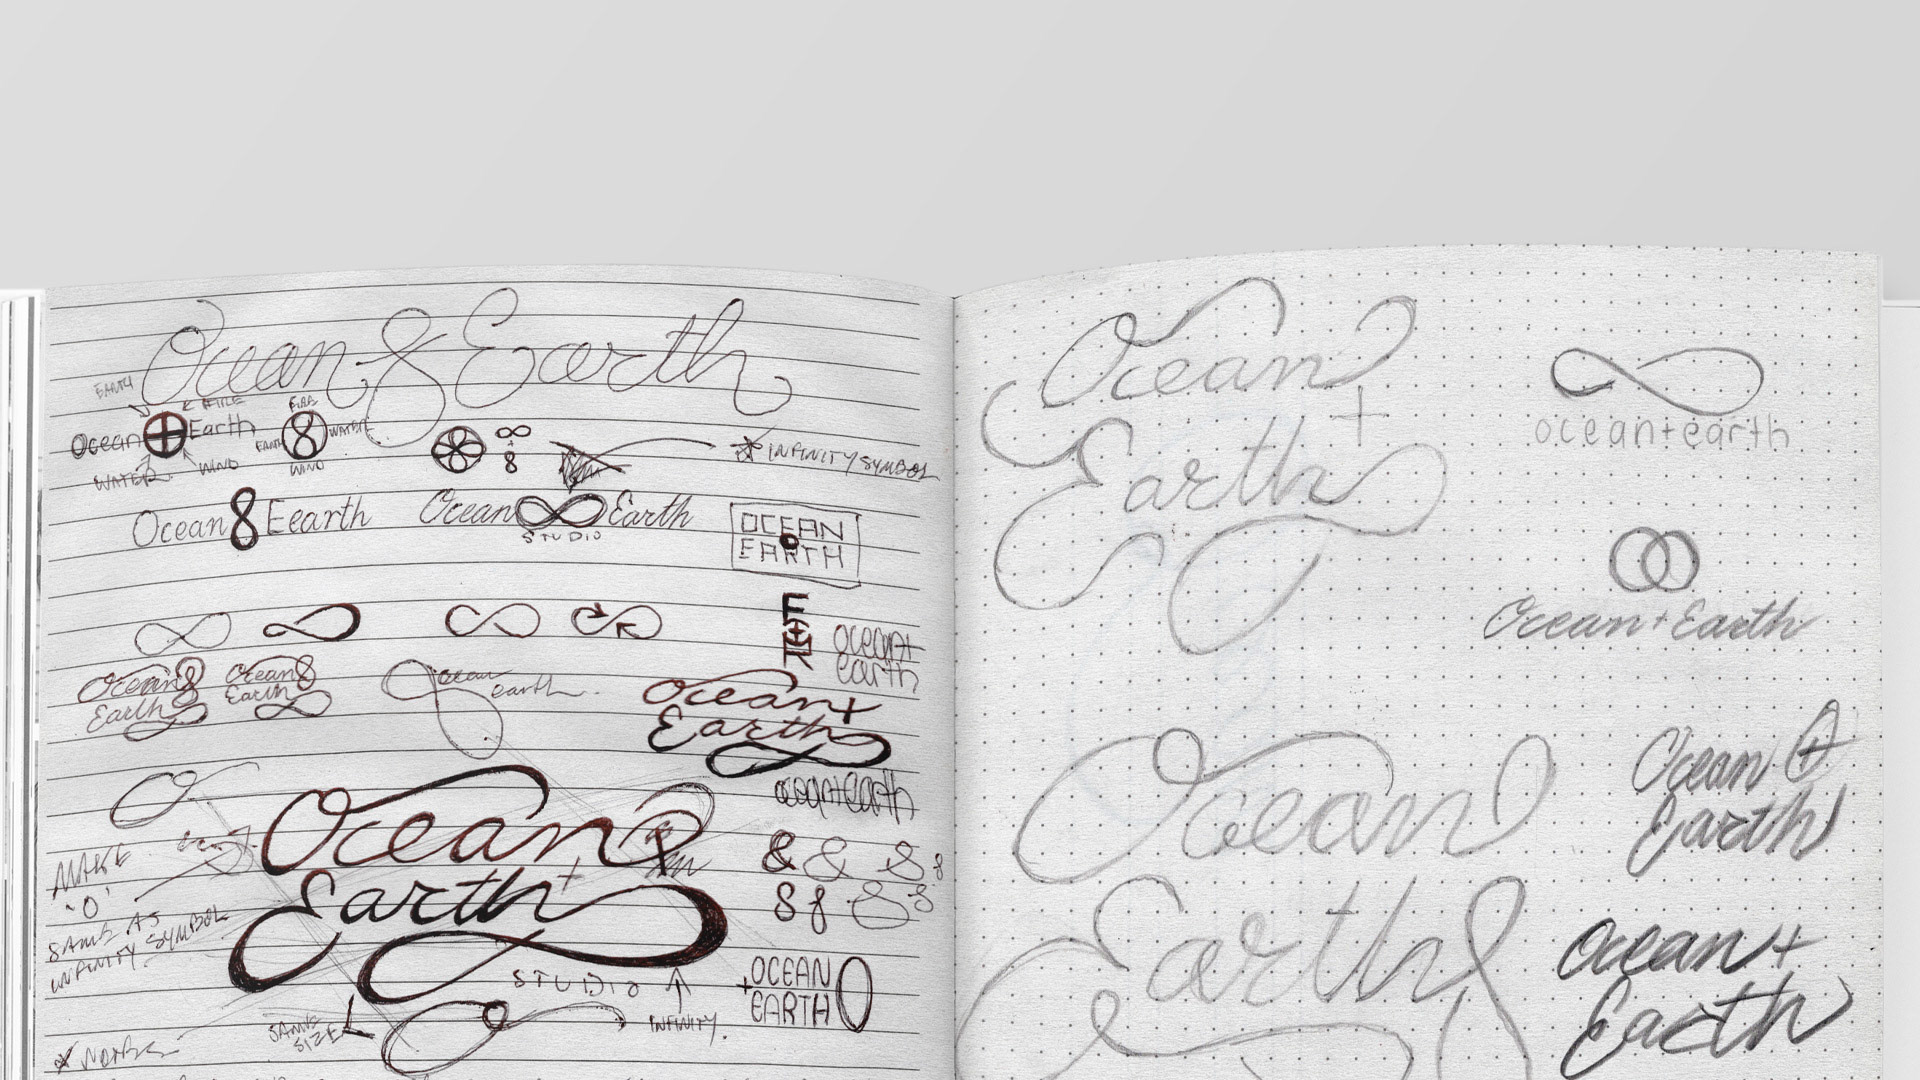 Ocean & Earth
EARTH
FIRE
Ocean ⊕ Earth
WATER
WIND
FIRE
EARTH 8 WATER
WIND
∞
+
8
* INFINITY SYMBOL
Ocean 8 Eearth
Ocean ∞ Earth
STUDIO
OCEAN
EARTH
ocean+
earth
Ocean 8
Earth
Ocean 8
Earth
ocean
earth
Ocean+
Earth
ocean+earth
Ocean
Earth +
STUDIO
MAKE
'O'
SAME AS
INFINITY SYMBOL
& & & 8
8 8 8 8
+OCEAN
EARTH
SAME
SIZE
INFINITY
* NOTES
Ocean
+
Earth
ocean+earth
Ocean + Earth
Ocean
Earth
Ocean +
Earth
Ocean+
Earth